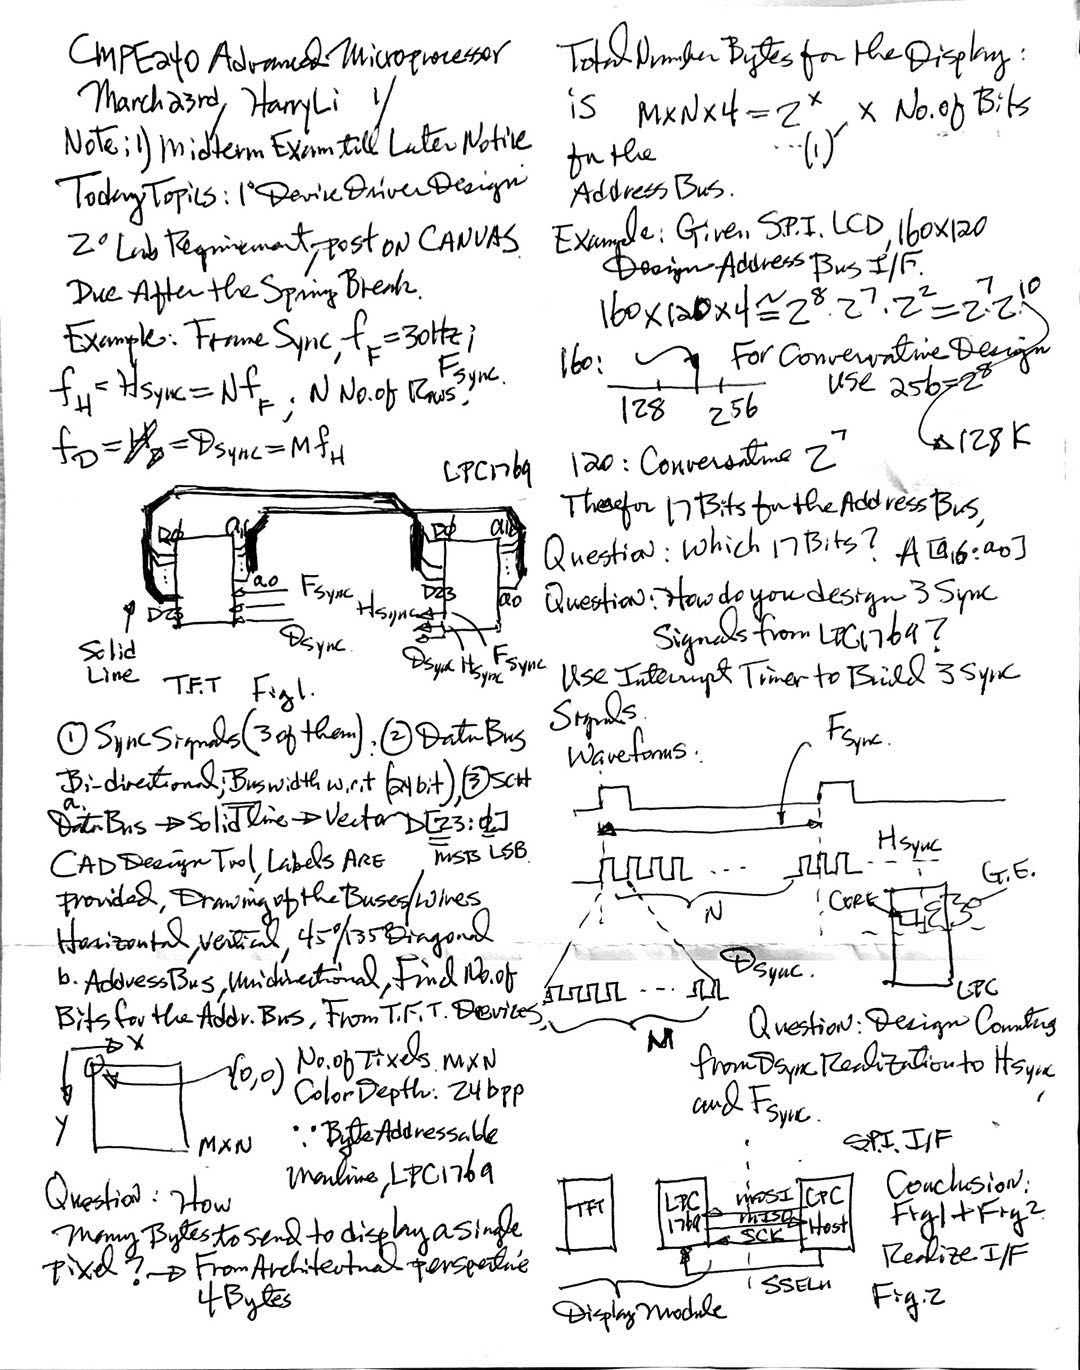 CMPE240 Advanced Microprocessor
March 23rd, Harry Li 1/
Note: 1) Midterm Exam till Later Notice
Today Topics: 1° Device Driver Design
2° Lab Requirement, post ON CANVAS.
Due After the Spring Break.
Example: Frame Sync, fF = 30Hz;
Fsync.
fH = Hsync = N fF; N No. of Rows.
fD = = Dsync = M fH
LPC1769
D0 a16 D0 a16
a0 Fsync D23 a0
D23 Hsync
Dsync. Dsync Hsync Fsync
Solid
Line
T.F.T Fig 1.
① Sync Signals (3 of them). ② Data Bus
Bi-directional; Bus width w.r.t (24 bit), ③ SCH
a.
Data Bus → Solid line → Vector D[23:0]
MSB LSB.
CAD Design Tool, Labels ARE
provided, Drawing of the Buses/wires
Horizontal, vertical, 45°/135° Diagonal
b. Address Bus, Unidirectional, Find No. of
Bits for the Addr. Bus, From T.F.T. Devices,
X
(0,0)
Y
MXN
No. of Pixels. MXN
Color Depth: 24bpp
∵ Byte Addressable
Machine, LPC1769
Question: How
Many Bytes to send to display a single
pixel? → From Architectural perspective
4 Bytes
Total Number Bytes for the Display:
is M×N×4 = 2^x, x No. of Bits
for the ...(1)
Address Bus.
Example: Given S.P.I. LCD, 160X120
Design Address Bus I/F.
160×120×4 ≅ 2^8 · 2^7 · 2^2 = 2^7 · 2^10
160: For Conservative Design
128 256 USE 256 = 2^8
128K
120: Conservative 2^7
Therefor 17 Bits for the Address Bus,
Question: Which 17 Bits? A[a16:a0]
Question: How do you design 3 Sync
Signals from LPC1769?
Use Interrupt Timer to Build 3 Sync
Signals.
Waveforms. Fsync.
Hsync
N
CORE G.E.
Dsync. LPC
M
Question: Design Counters
from Dsync Realization to Hsync
and Fsync.
S.P.I. I/F
TFT LPC 1769 MOSI MISO SCK CPC Host
SSELn
Display Module
Conclusion:
Fig1 + Fig2
Realize I/F
Fig. 2